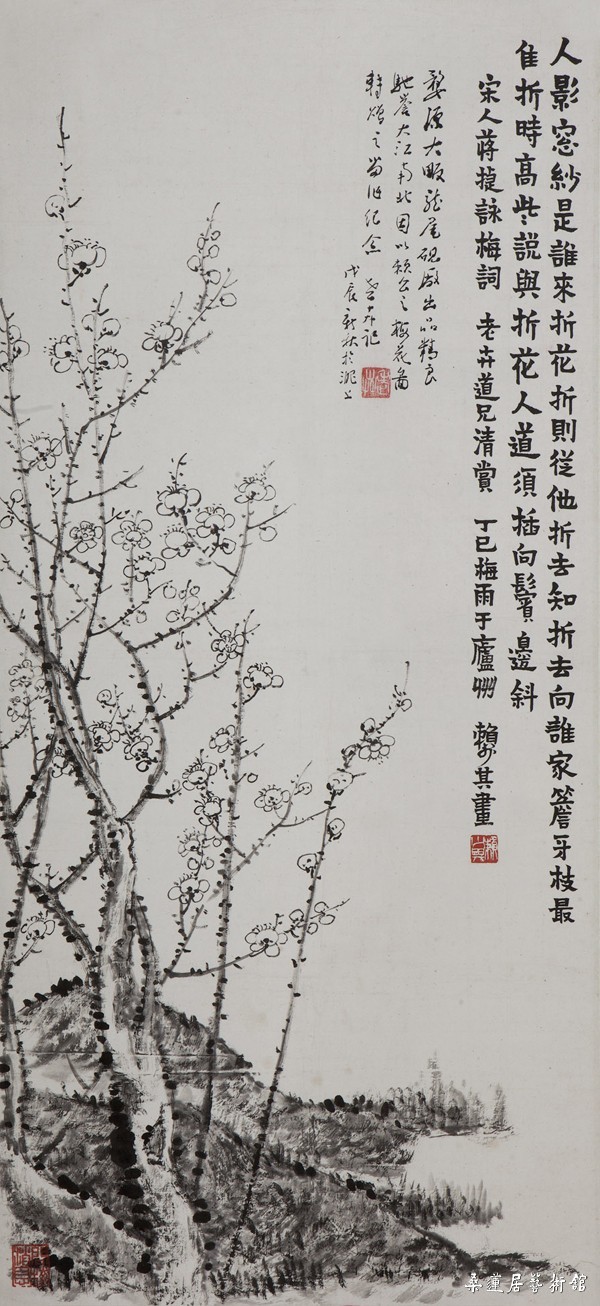 人影窓紗是誰來折花折則從他折去知折去向誰家簷牙枝最
佳折時高些說與折花人道須插向鬢邊斜
宋人蔣捷詠梅詞 老卉道兄清賞 丁巳梅雨于廬州 賴少其畫
婺源大畈龍尾硯廠出品精良
馳譽大江南北因以賴公之梅花圖
轉贈之留作紀念 老卉記
戊辰新秋於上
桑蓮居藝術館